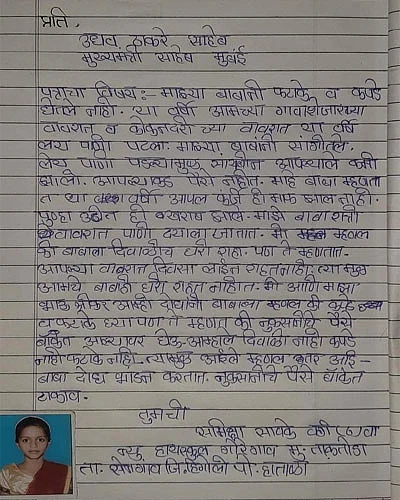 प्रति,
उधव ठाकरे साहेब
मुख्यमंत्री साहेब मुंबई
पत्राचा विषय:- माझ्या बाबांनी फटाके व कपडे
घेतले नाही. या वर्षी आमच्या गावाशेजारच्या
वावरात व च्या वावरात या वर्षी
लय पाणी पडला माझ्या बाबांनी सांगीतले.
लय पाणी पडल्यामुळ सोयाबीन आपल्याले कमी
झाली. आपल्याकड पैसे नाहीत. माहे बाबा म्हणतात
त या वर्षी आपल कर्ज ही माफ झाल नाही.
पुन्हा उडीत ही खराब झाल. माझे बाबा रात्री
वावरात पाणी द्यायला जातात. मी म्हणल
की बाबाला दिवाळीच घरी राहा. पण ते म्हणतात.
आपल्या वावरात दिवसा लाईन राहत नाही, त्यामुळ
आमचे बाबाही घरी राहत नाहीत. मी आणि माझा
भाऊ आम्ही दोघांनी बाबाला म्हणल की कपडे
व फटाके घ्या पण ते म्हणतात की नुकसानीचे पैसे
बँकेत आल्यावर घेऊ. आम्हाल दिवाळी नाही कपडे
नाही फटाके नाहीत. त्यामुळ आईले म्हणल तर आई-
बाबा दोघ भांडण करतात. नुकसानीचे पैसे बँकेत
टाकाव.
तुमची
समिक्षा सावके वर्ग (6) वा
न्यु हायस्कूल गोरेगाव मु. ताकतोडा
ता. सेनगाव जि. हिंगोली पो. हाताळा